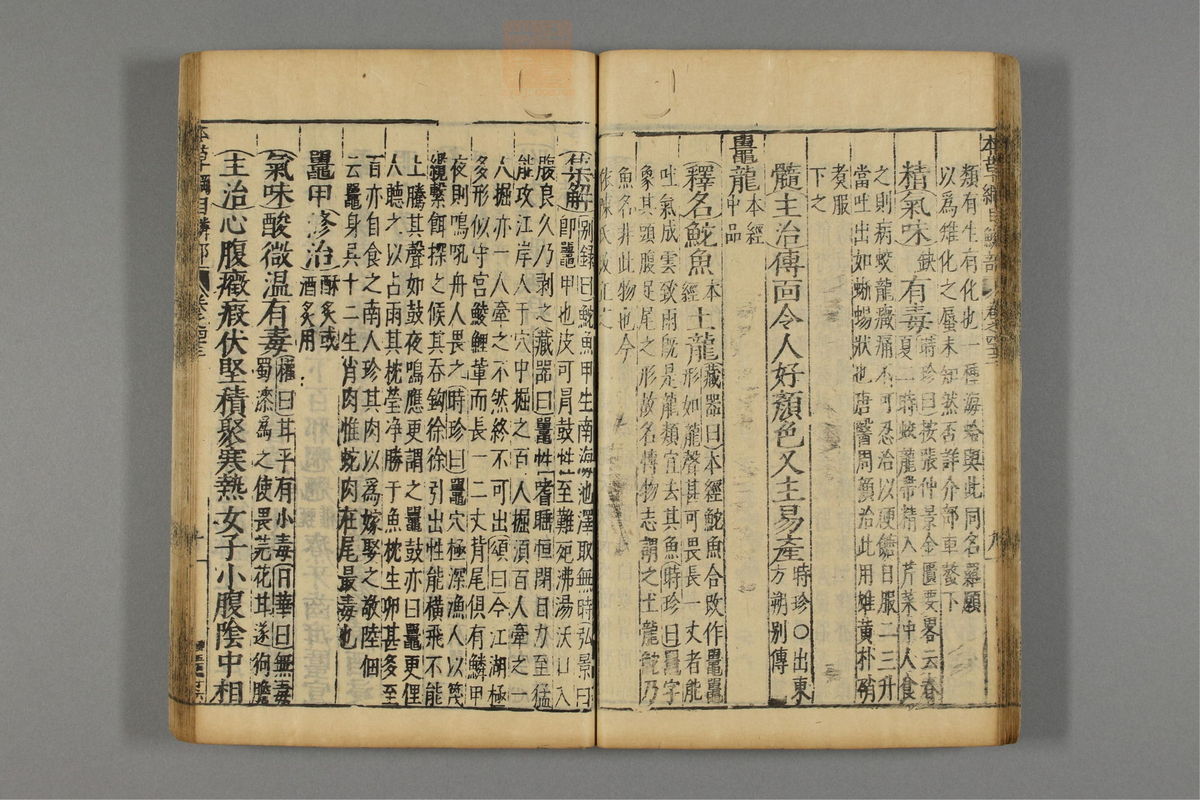 本草綱目鱗部 卷之四十三 九
類有生有化也一種海蛤與此同名羅願
以爲雉化之蜃未知然否詳介部車螯下
精氣味缺有毒時珍曰按張仲景金匱要畧云春
夏二時蛟龍帶精入芹菜中人食
之則病蛟龍癥痛不可忍治以硬餹日服二三升
當吐出如蜥蜴狀也唐醫周顧治此用雄黃朴硝
煑服
下之
髓主治傅面令人好顏色又主易產時珍〇出東
方朔別傳
鼉龍本經
中品
釋名鮀魚本
經土龍藏器曰本經鮀魚合改作鼉鼉
形如龍聲甚可畏長一丈者能
吐氣成雲致雨既是龍類宜去其魚時珍曰鼉字
象其頭腹足尾之形故名博物志謂之土龍鮀乃
魚名非此物也今
依陳氏改正之
集解別錄曰鮀魚甲生南海池澤取無時弘景曰
即鼉甲也皮可冐鼓性至難死沸湯沃口入
腹良久乃剥之藏器曰鼉性嗜睡恒閉目力至猛
能攻江岸人于穴中掘之百人掘須百人牽之一
人掘亦一人牽之不然終不可出頌曰今江湖極
多形似守宮鯪鯉輩而長一二丈背尾俱有鱗甲
夜則鳴吼舟人畏之時珍曰鼉穴極深漁人以篾
纜繫餌探之候其吞鈎徐徐引出性能橫飛不能
上騰其聲如鼓夜鳴應更謂之鼉鼓亦曰鼉更俚
人聽之以占雨其枕瑩净勝于魚枕生卵甚多至
百亦自食之南人珍其肉以爲嫁娶之敬陸佃
云鼉身具十二生肖肉惟蛇肉在尾最毒也
鼉甲修治酥炙或
酒炙用
氣味酸微温有毒權曰甘平有小毒日華曰無毒
蜀漆爲之使畏芫花甘遂狗膽
主治心腹癥瘕伏堅積聚寒熱女子小腹陰中相
本草綱目鱗部 卷之四十三 十